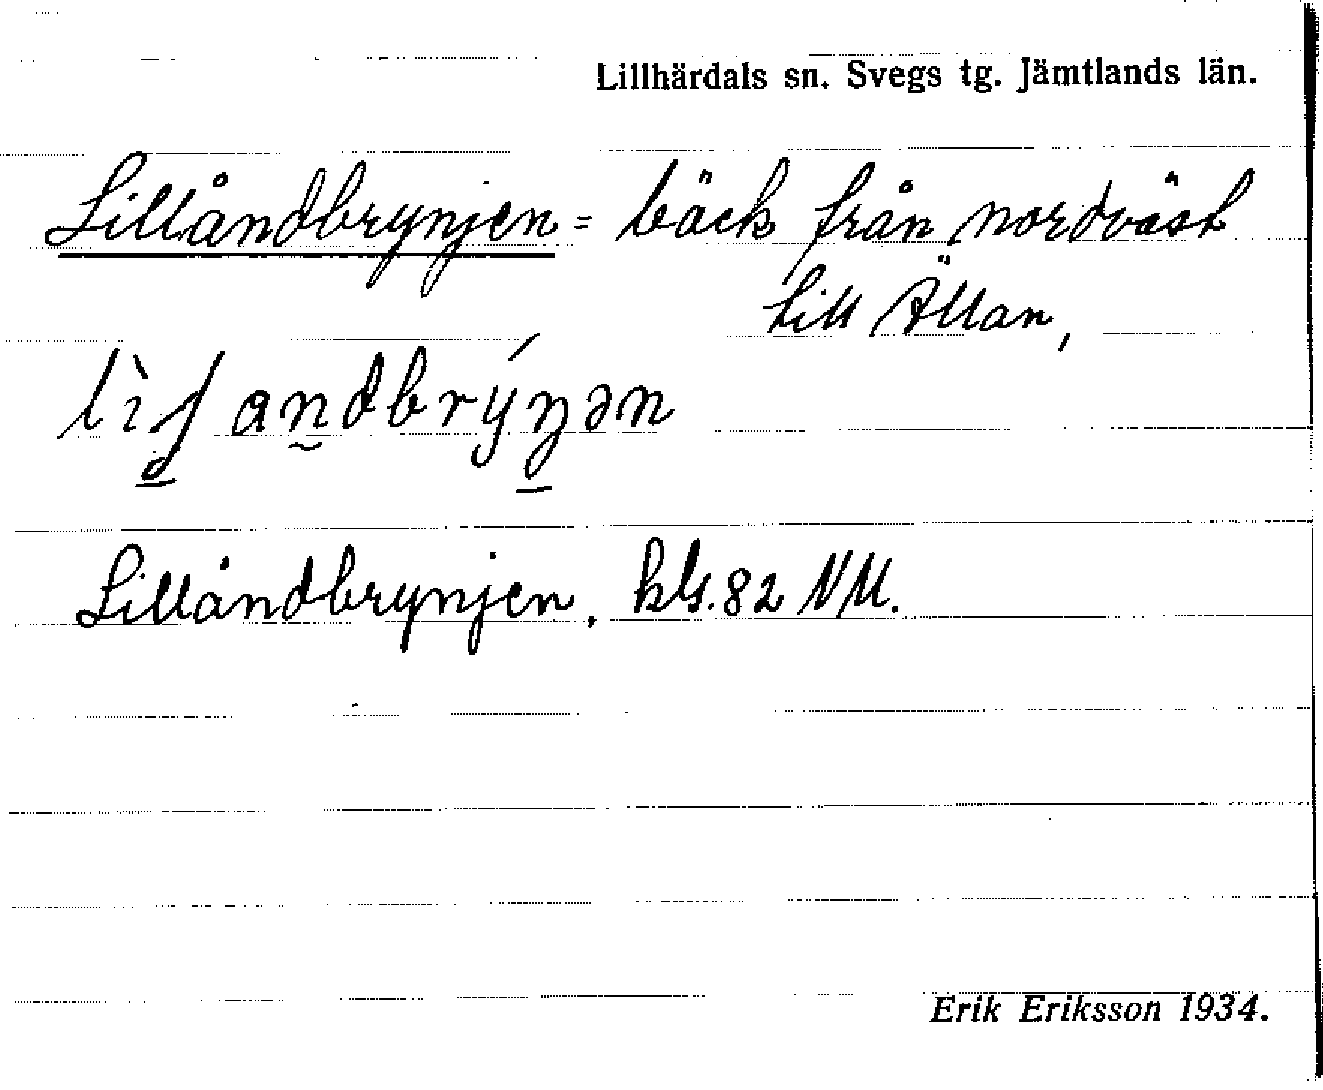 Lillhärdals sn. Svegs tg. Jämtlands län.
Lillåndbrynjen = bäck från nordväst
till Ällan,
Lillåndbrynjen, kls. 82 NM.
Erik Eriksson 1934.